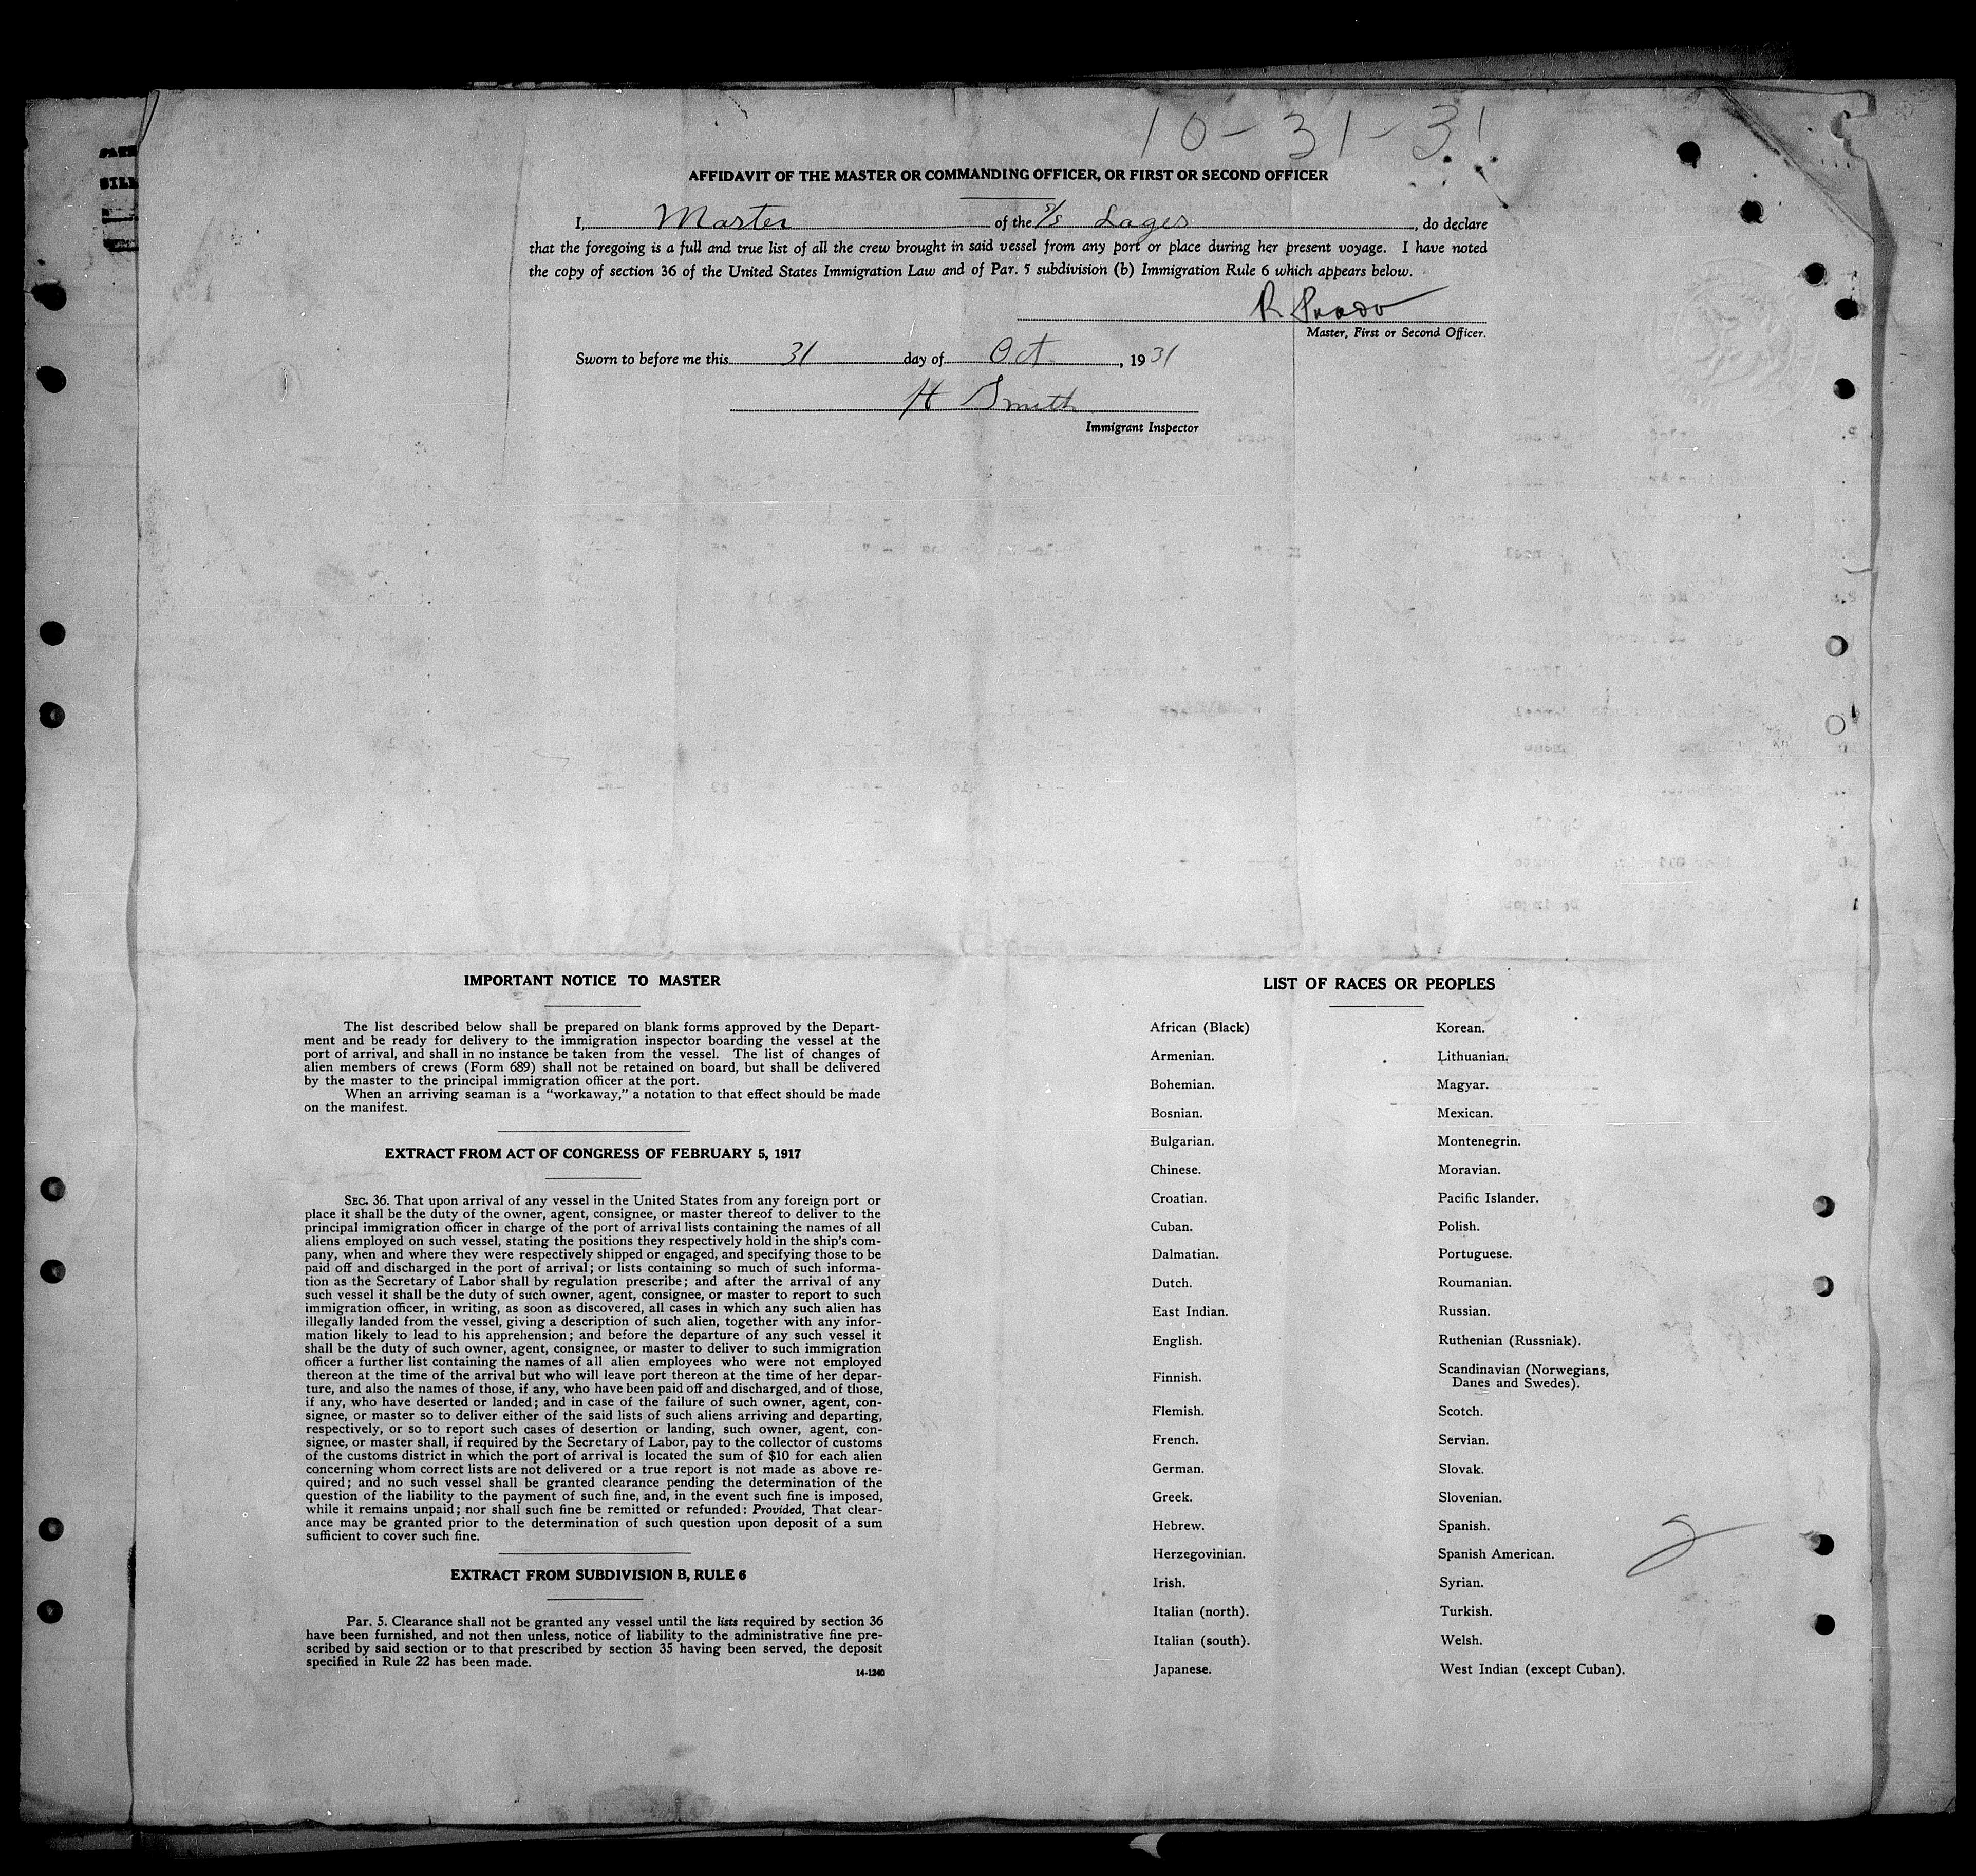 10-31-31
AFFIDAVIT OF THE MASTER OR COMMANDING OFFICER, OR FIRST OR SECOND OFFICER
I, Master of the S/S Lages, do declare
that the foregoing is a full and true list of all the crew brought in said vessel from any port or place during her present voyage. I have noted
the copy of section 36 of the United States Immigration Law and of Par. 5 subdivision (b) Immigration Rule 6 which appears below.
R. Prado
Master, First or Second Officer.
Sworn to before me this 31 day of Oct, 1931
H Smith
Immigrant Inspector
IMPORTANT NOTICE TO MASTER
The list described below shall be prepared on blank forms approved by the Depart-
ment and be ready for delivery to the immigration inspector boarding the vessel at the
port of arrival, and shall in no instance be taken from the vessel. The list of changes of
alien members of crews (Form 689) shall not be retained on board, but shall be delivered
by the master to the principal immigration officer at the port.
When an arriving seaman is a "workaway," a notation to that effect should be made
on the manifest.
EXTRACT FROM ACT OF CONGRESS OF FEBRUARY 5, 1917
SEC. 36. That upon arrival of any vessel in the United States from any foreign port or
place it shall be the duty of the owner, agent, consignee, or master thereof to deliver to the
principal immigration officer in charge of the port of arrival lists containing the names of all
aliens employed on such vessel, stating the positions they respectively hold in the ship's com-
pany, when and where they were respectively shipped or engaged, and specifying those to be
paid off and discharged in the port of arrival; or lists containing so much of such informa-
tion as the Secretary of Labor shall by regulation prescribe; and after the arrival of any
such vessel it shall be the duty of such owner, agent, consignee, or master to report to such
immigration officer, in writing, as soon as discovered, all cases in which any such alien has
illegally landed from the vessel, giving a description of such alien, together with any infor-
mation likely to lead to his apprehension; and before the departure of any such vessel it
shall be the duty of such owner, agent, consignee, or master to deliver to such immigration
officer a further list containing the names of all alien employees who were not employed
thereon at the time of the arrival but who will leave port thereon at the time of her depar-
ture, and also the names of those, if any, who have been paid off and discharged, and of those,
if any, who have deserted or landed; and in case of the failure of such owner, agent, con-
signee, or master so to deliver either of the said lists of such aliens arriving and departing,
respectively, or so to report such cases of desertion or landing, such owner, agent, con-
signee, or master shall, if required by the Secretary of Labor, pay to the collector of customs
of the customs district in which the port of arrival is located the sum of $10 for each alien
concerning whom correct lists are not delivered or a true report is not made as above re-
quired; and no such vessel shall be granted clearance pending the determination of the
question of the liability to the payment of such fine, and, in the event such fine is imposed,
while it remains unpaid; nor shall such fine be remitted or refunded: Provided, That clear-
ance may be granted prior to the determination of such question upon deposit of a sum
sufficient to cover such fine.
EXTRACT FROM SUBDIVISION B, RULE 6
Par. 5. Clearance shall not be granted any vessel until the lists required by section 36
have been furnished, and not then unless, notice of liability to the administrative fine pre-
scribed by said section or to that prescribed by section 35 having been served, the deposit
specified in Rule 22 has been made.
14-1240
LIST OF RACES OR PEOPLES
African (Black)
Armenian.
Bohemian.
Bosnian.
Bulgarian.
Chinese.
Croatian.
Cuban.
Dalmatian.
Dutch.
East Indian.
English.
Finnish.
Flemish.
French.
German.
Greek.
Hebrew.
Herzegovinian.
Irish.
Italian (north).
Italian (south).
Japanese.
Korean.
Lithuanian.
Magyar.
Mexican.
Montenegrin.
Moravian.
Pacific Islander.
Polish.
Portuguese.
Roumanian.
Russian.
Ruthenian (Russniak).
Scandinavian (Norwegians,
Danes and Swedes).
Scotch.
Servian.
Slovak.
Slovenian.
Spanish.
Spanish American.
Syrian.
Turkish.
Welsh.
West Indian (except Cuban).
2